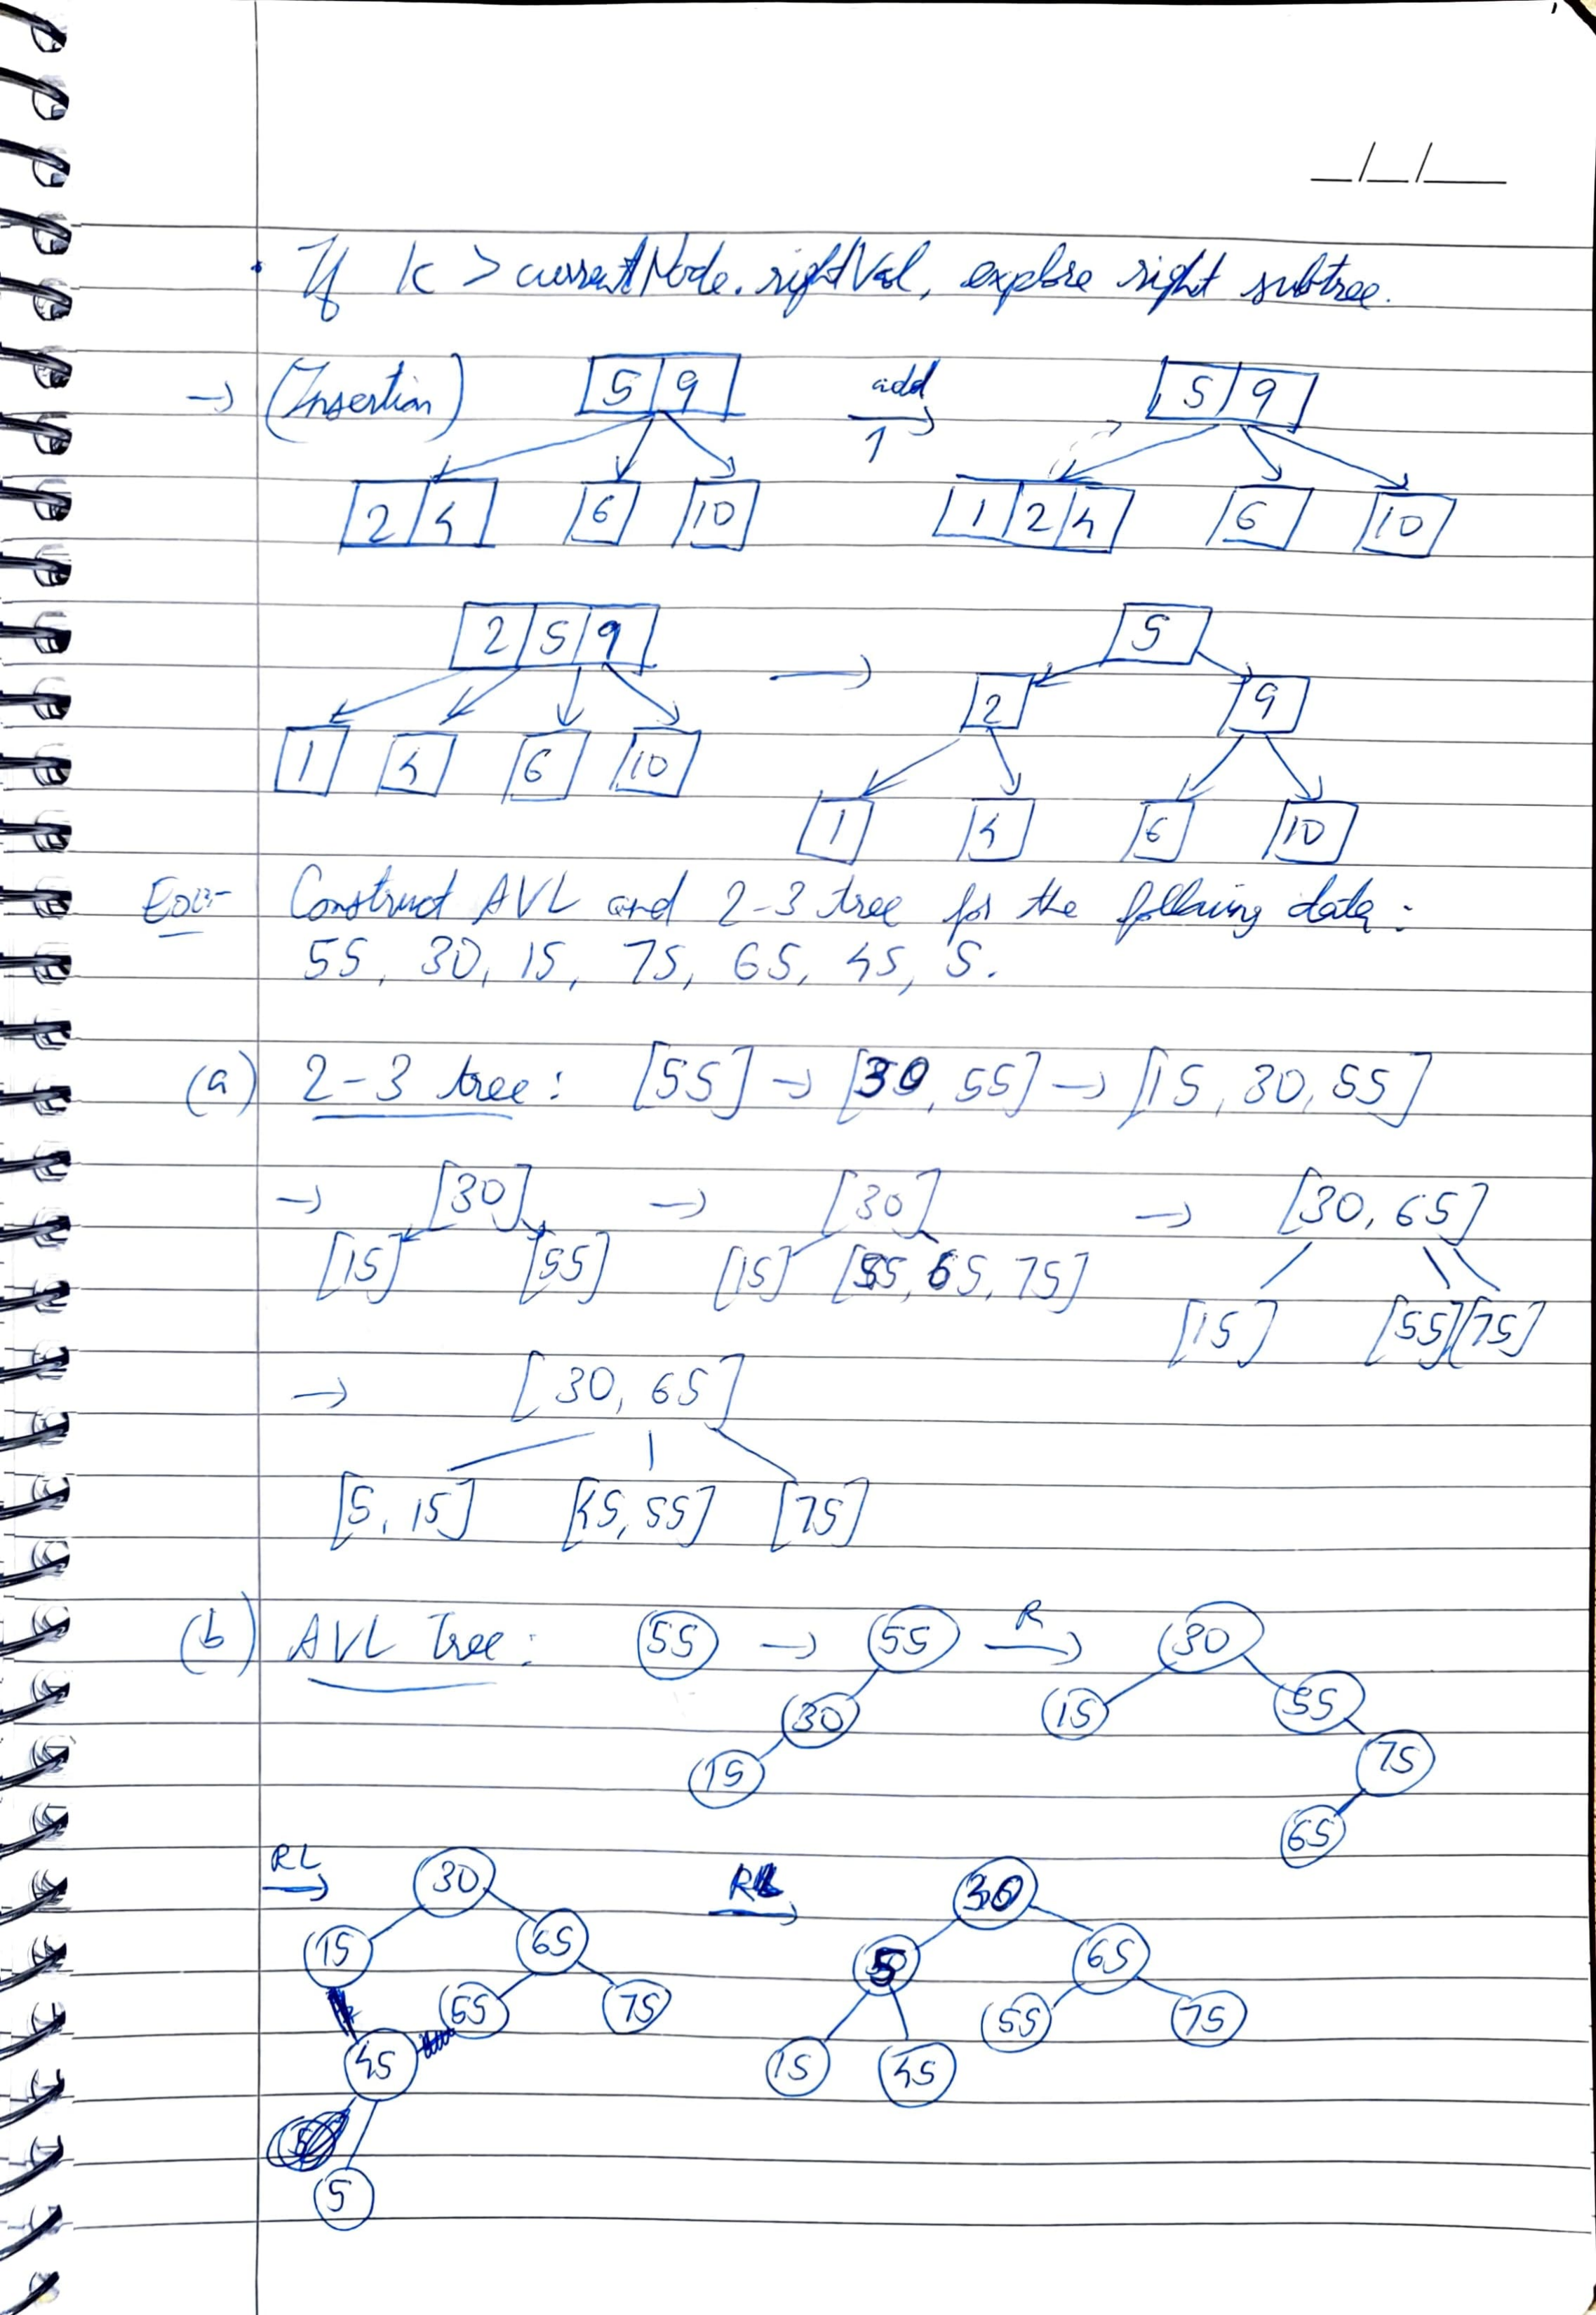 _/_/__
• If k > currentNode.rightVal, explore right subtree.
→ (Insertion) 5 9 add 1 → 5 9
2 4 6 10 1 2 4 6 10
2 5 9 → 5
2 9
1 4 6 10
1 4 6 10
Ex:- Construct AVL and 2-3 tree for the following data:
55, 30, 15, 75, 65, 45, 5.
(a) 2-3 tree: [55] → [30, 55] → [15, 30, 55]
→ [30] → [30] → [30, 65]
[15] [55] [15] [55, 65, 75]
[15] [55] [75]
→ [30, 65]
[5, 15] [45, 55] [75]
(b) AVL Tree: 55 → 55 R → 30
30 15 55
15 75
65
RL → 30 R → 30
15 65 5 65
55 75 55 75
45 15 45
5